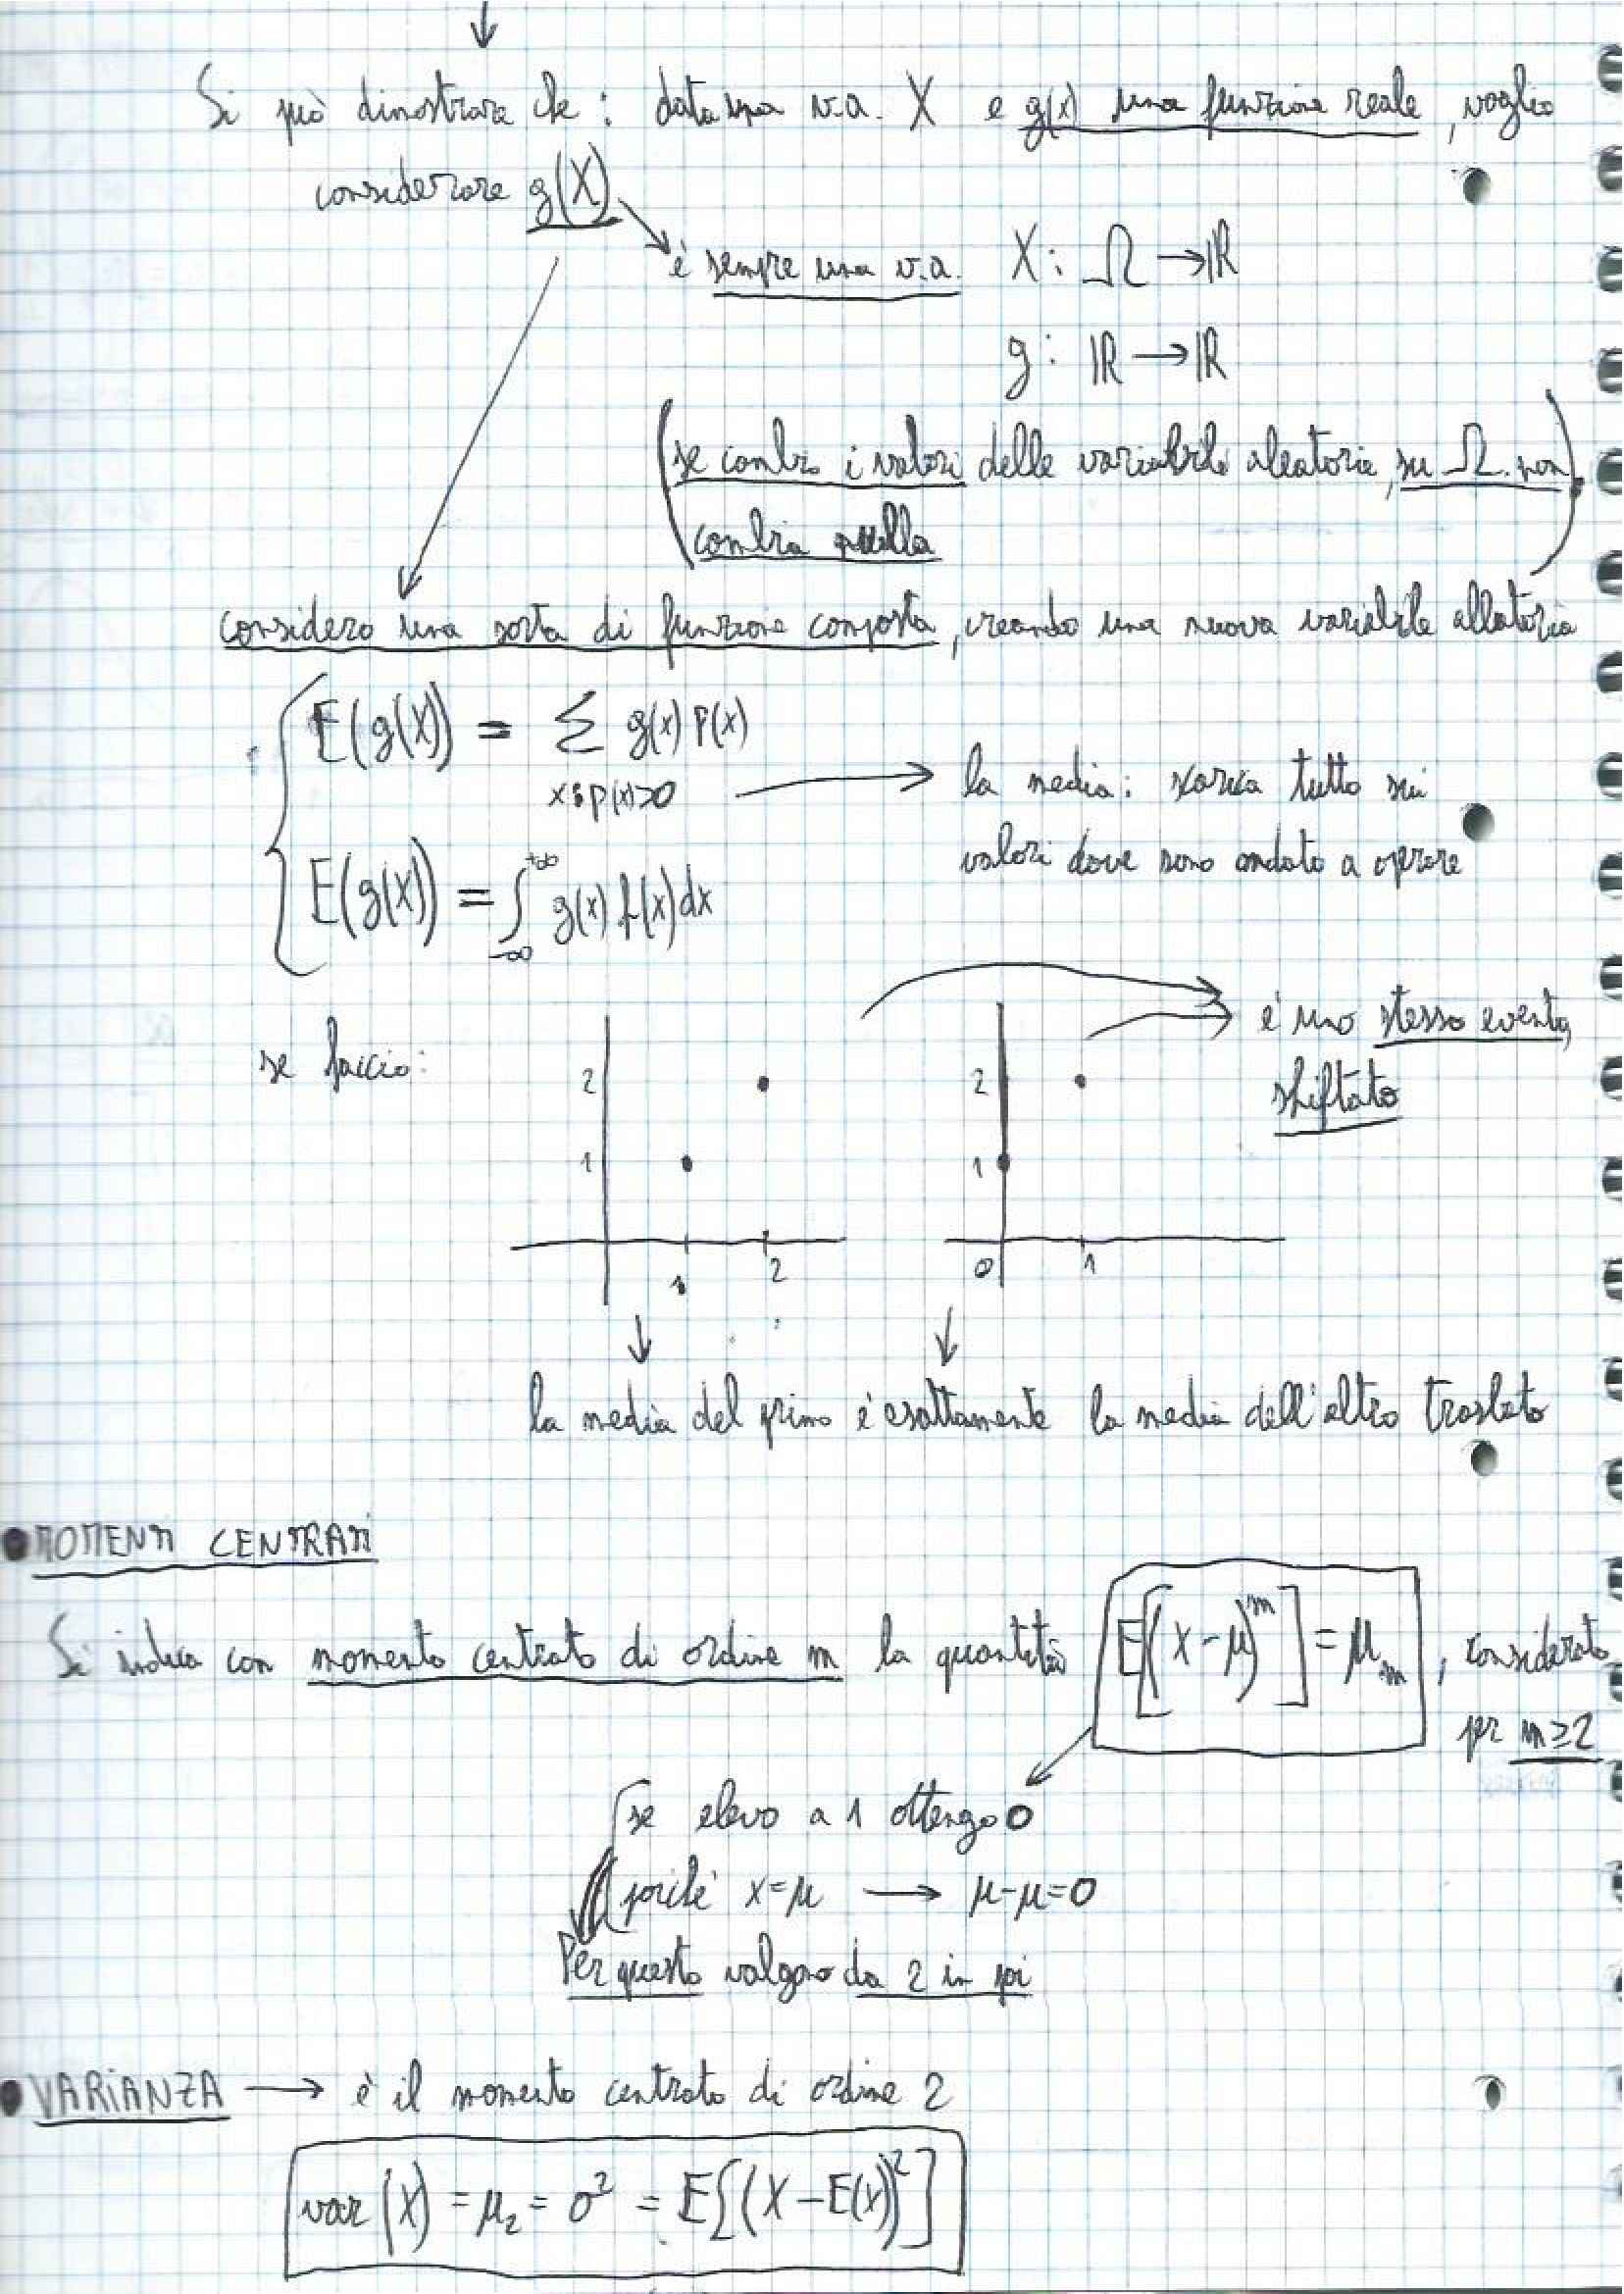 ↓
Si può dimostrare che : data una v.a. X e g(x) una funzione reale, voglio
considerare g(X)
è sempre una v.a. X : Ω → ℝ
g : ℝ → ℝ
(se cambio i valori delle variabile aleatoria, su Ω non
cambia quella)
considero una sorta di funzione composta, creando una nuova variabile alleatoria
E(g(X)) = Σ g(x) P(x)
x : p(x)>0 → la media : scarica tutto sui
valori dove sono andato a operare
E(g(x)) = ∫ g(x) f(x) dx
+∞
-∞
se faccio :
è uno stesso evento,
shiftato
2
1
1 2
2
1
0 1
↓ ↓
la media del primo è esattamente la media dell'altro traslato
• MOMENTI CENTRATI
Si indica con momento centrato di ordine m la quantità E[(x-μ)^m] = μ_m, considerato
per m≥2
se elevo a 1 ottengo 0
poiché x=μ → μ-μ=0
Per questo valgono da 2 in poi
• VARIANZA → è il momento centrato di ordine 2
var(X) = μ₂ = σ² = E[(X-E(x))²]